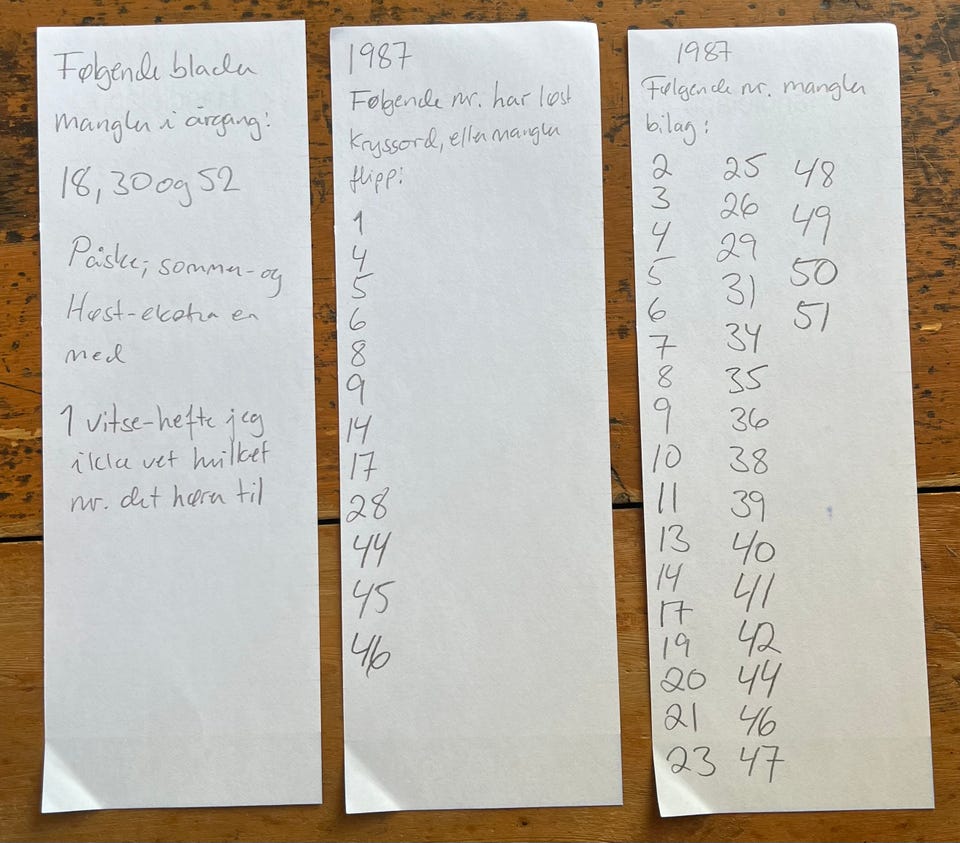 Følgende blader
mangler i årgang:
18, 30 og 52
Påske-, sommer- og
Høst-ekstra er
med
1 vitse-hefte jeg
ikke vet hvilket
nr. det hører til
1987
Følgende nr. har løst
kryssord, eller mangler
flipp:
1
4
5
6
8
9
14
17
28
44
45
46
1987
Følgende nr. mangler
bilag:
2
3
4
5
6
7
8
9
10
11
13
14
17
19
20
21
23
25
26
29
31
34
35
36
38
39
40
41
42
44
46
47
48
49
50
51